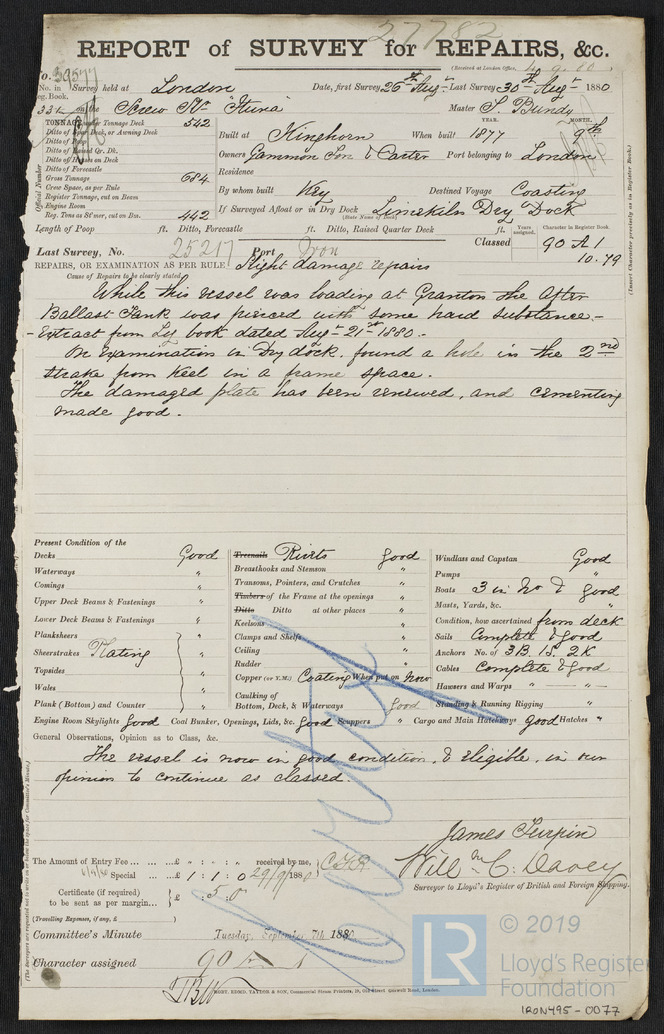 27782
REPORT of SURVEY for REPAIRS, &c.
(Received at London Office, 4.9.80)
No. 39577
No. in Survey held at London Date, first Survey 26th Augt Last Survey 30th Augt 1880
Reg. Book.
334 on the Screw Str Ituna Master S. Bundy
TONNAGE under Tonnage Deck 542
YEAR. MONTH.
Ditto of Spar Deck, or Awning Deck
Built at Kinghorn When built 1877 9th
Ditto of Poop
Ditto of Raised Qr. Dk.
Owners Gammon Son & Carter Port belonging to London
Ditto of Houses on Deck
Ditto of Forecastle
Residence
Gross Tonnage 684
Crew Space, as per Rule
By whom built Key Destined Voyage Coasting
Register Tonnage, cut on Beam
Engine Room
If Surveyed Afloat or in Dry Dock Limekiln Dry Dock
(State Name of Dock)
Reg. Tons as St'mer, cut on Bm. 442
Official Number
Length of Poop ft. Ditto, Forecastle ft. Ditto, Raised Quarter Deck ft.
Years assigned. Character in Register Book.
Classed 90 A 1
10.79
(Insert Character precisely as in Register Book.)
Last Survey, No. 25217 Port Iron
REPAIRS, OR EXAMINATION AS PER RULE Slight damage repairs
Cause of Repairs to be clearly stated
While this vessel was loading at Granton the After
Ballast Tank was pierced with some hard substance.-
- Extract from Log book dated Augt 21st 1880.-
On examination in Dry dock, found a hole in the 2nd
strake from keel in a frame space.
The damaged plate has been renewed, and cementing
made good.
Present Condition of the
Decks Good
Waterways "
Comings "
Upper Deck Beams & Fastenings "
Lower Deck Beams & Fastenings "
Planksheers "
Sheerstrakes Plating "
Topsides "
Wales "
Plank (Bottom) and Counter "
Treenails Rivets good
Breasthooks and Stemson "
Transoms, Pointers, and Crutches "
Timbers of the Frame at the openings "
Ditto Ditto at other places "
Keelsons "
Clamps and Shelfs "
Ceiling "
Rudder "
Copper (or Y.M.) Coating When put on Now
Caulking of
Bottom, Deck, & Waterways Good
Windlass and Capstan Good
Pumps "
Boats 3 in No & good
Masts, Yards, &c. "
Condition, how ascertained from deck
Sails Complete & Good
Anchors No. of 3B. 1S. 2K
Cables Complete & Good
Hawsers and Warps " "
Standing & Running Rigging "
Engine Room Skylights Good Coal Bunker, Openings, Lids, &c. Good Scuppers " Cargo and Main Hatchways good Hatches "
General Observations, Opinion as to Class, &c.
The vessel is now in good condition, & eligible, in our
opinion to continue as classed.
James Turpin
Will m C. Davey
Surveyor to Lloyd's Register of British and Foreign Shipping.
The Amount of Entry Fee ... £ " : " : " received by me,
Special ... £ 1 : 1 : 0 29/9/1880
Certificate (if required) £ : 5. 0
to be sent as per margin...
(Travelling Expenses, if any, £ )
Committee's Minute Tuesday, September 7th 1880
Character assigned 90 A 1
MORT. BEMRO. TAYLOR & SON, Commercial Steam Printers, 19, Old Street Goswell Road, London.
LR
© 2019
Lloyd's Register
Foundation
IRON495-0077